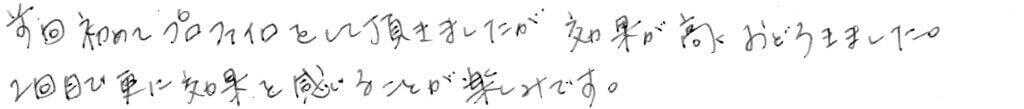 前回初めてプロファイロをして頂きましたが 効果が高く おどろきました。
2回目で更に効果を感じることが楽しみです。